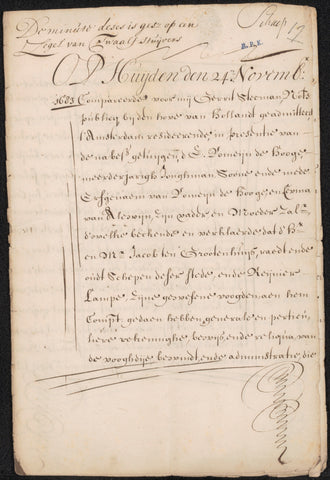 De minute deses is gesz op een
Zegel van Twaalf stuijvers
Schaep 12
B.R.K.
OP Huijden den 24e Novemb:
1683 Compareerde voor mij Gerrit Steeman Nots
publicq bij den hove van Hollandt geadmitteert
t'Amsterdam residerende in presentie van
de nabes: getuijgen, d'E. Romeijn de Hooge
meerderjarigh Jonghman Soone ende mede
Erfgenaem van Romeijn de Hooge, en Erma
van Alewijn, Zijn vader en Moeder Zalr,
d'welke bekende en verklaerde dat d'Hr
en Mr Jacob ten Grootenhuijs, raedt ende
oudt Schepen deser stede, ende Reijnier
Lampe, Zijne gewesene vooghden aen hem
Compt. gedaen hebben, generale en particu,
liere rekeninghe bewijs, ende reliqua, van
de vooghdije bewindt, ende administratie, die